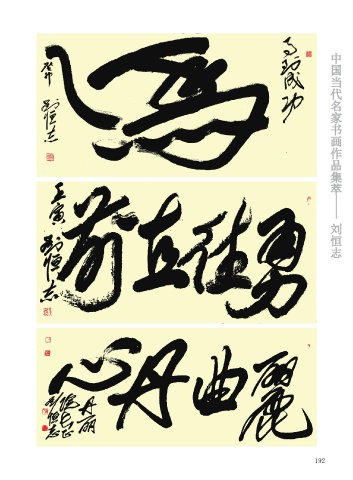 马到成功
馬
癸卯
刘恒志
勇往直前
壬寅
刘恒志
麗曲丹心
丹丽
刘恒志
中国当代名家书画作品集萃——刘恒志
192